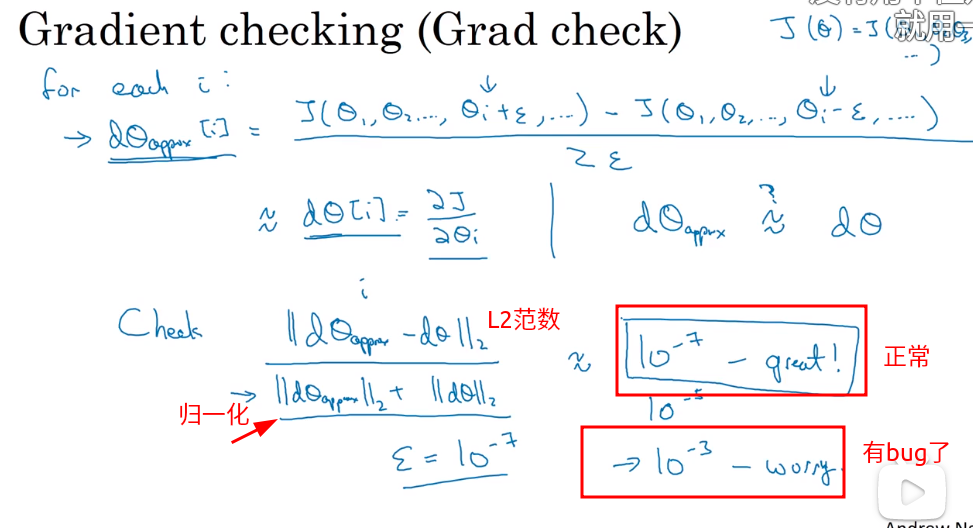 就用一
Gradient checking (Grad check)
J(θ) = J(
for each i:
→ dθapprox[i] = J(θ₁, θ₂, ..., θᵢ+ε, ...) - J(θ₁, θ₂, ..., θᵢ-ε, ...)
2ε
≈ dθ[i] = ∂J / ∂θᵢ | dθapprox ≈? dθ
i
Check ‖dθapprox - dθ‖₂ L2范数
→ ‖dθapprox‖₂ + ‖dθ‖₂
归一化
≈ 10⁻⁷ - great! 正常
10⁻⁵
ε = 10⁻⁷
→ 10⁻³ - worry. 有bug了
Andrew